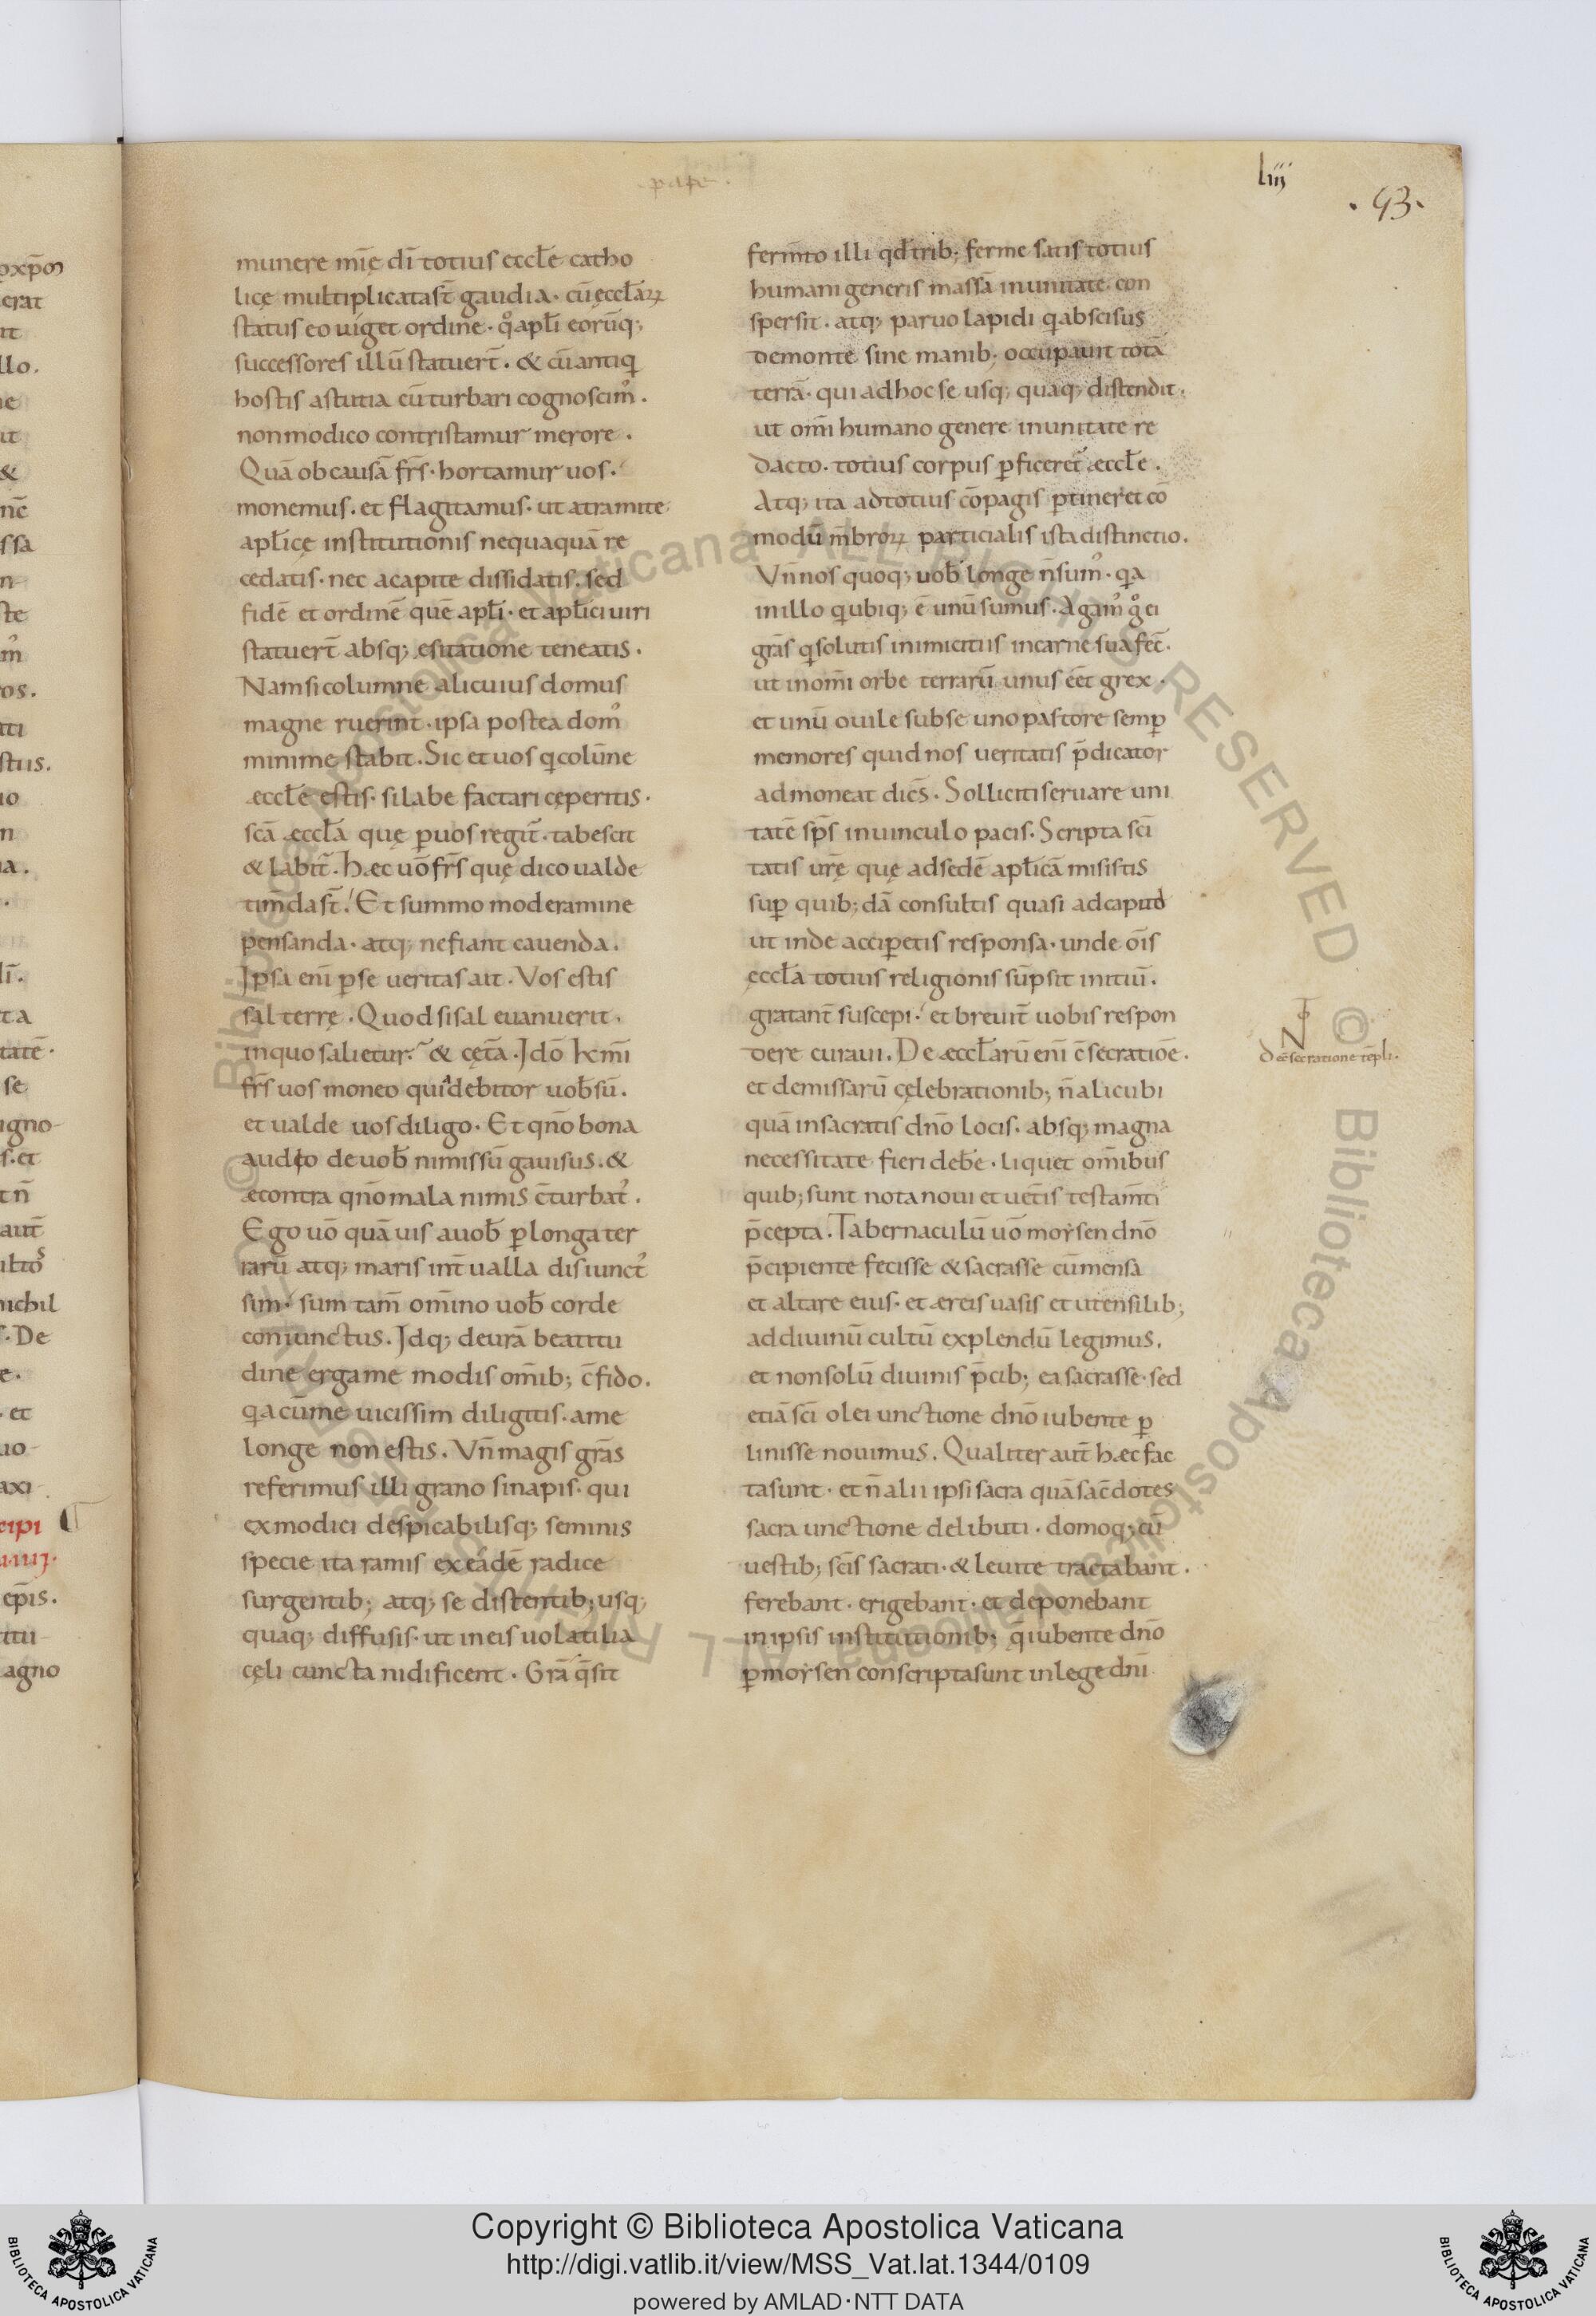 pape.
liij
. 93.
munere mīę dī totius eccłe catho
licę multiplicatast̄ gaudia · cū ęccłaꝝ
status eo uiget ordine · qͦ apłi eorūq;
successores illū statuert̄ . & cū antiqͥ
hostis astutia eū turbari cognoscimꝰ .
non modico contristamur merore .
Quā ob causā frs̄ · hortamur uos .
monemus . et flagitamus · ut atramite
apłicę institutionis nequaquā re
cedatis · nec acapite dissidatis . sed
fidē et ordinē quē apłi · et apłici uiri
statuert̄ absq; esitatione teneatis .
Nam si columnę alicuius domus
magne ruerint · ipsa postea domꝰ
minime stabit . Sic et uos qͥ colūne
æccłe estis · si labe factari ceperitis ·
scā æccła quę ꝑuos regit̄ · tabescit
& labit̄ . Hæc uō frs̄ quę dico ualde
tim̄da st̄ . Et summo moderamine
pensanda · atq; ne fiant cauenda .
Ipsa eni̅ ꝑse ueritas ait . Vos estis
sal terrę . Quod si sal euanuerit .
in quo salietur . & cęt̄a . Idō km̄i
frs̄ uos moneo quia debitor uob̄ sū .
et ualde uos diligo . Et qn̄o bona
audio de uob̄ nimis sū gauisus . &
æcontra qn̄o mala nimis c̄turbatꝰ .
Ego uō quā uis auob̄ ꝑ longa ter
rarū atq; maris int̄ualla disiunctꝰ
sim · sum tam̄ om̄ino uob̄ corde
coniunctus . Idq; deurā beatitu
dine ergame modis om̄ib; c̄fido .
qͥa cū me uicissim diligitis . ame
longe non estis . Vn̄ magis grās
referimus illi grano sinapis · qui
ex modici despicabilisq; seminis
specie ita ramis ex eadē radice
surgentib; atq; se distentib; usq;
quaq; diffusis · ut in eis uolatilia
cęli cuncta nidificent . Grā q̄sit
ferm̄to illi qd̄ trib; ferme satis totius
humani generis massā in unitate con
spersit . atq; paruo lapidi qͥ abscisus
demonte sine manib; occupauit totā
terrā · qui adhoc se usq; quaq; distendit .
ut om̄i humano genere in unitate re
dacto . totius corpus ꝑficeret̄ æccłe .
Atq; ita ad totius cōpagis ꝑtineret cō
modū m̄broꝝ particialis ista distinctio .
Vn̄ nos quoq; uob̄ longe n̄ sumꝰ · qͥa
in illo qͥ ubiq; ē unū sumus . Agamꝰ gͦ ei
grās qͥ solutis inimicitiis in carne sua fec̄ .
ut in om̄i orbe terrarū unus eēt grex .
et unū ouile sub se uno pastore semꝑ
memores quid nos ueritatis p̄dicator
admoneat dicēs . Solliciti seruare uni
tatē sps̄ in uinculo pacis . Scripta sc̄i
tatis ur̄ę quę ad sedē apłicā misistis
suꝑ quib; dā consultis quasi ad caput
ut inde acciꝑetis responsa · unde oīs
eccła totius religionis sūpsit initiū .
gratant̄ suscepi . et breuit̄ uobis respon
dere curaui . De æccłarū eni̅ c̄secratiōe .
et de missarū cęlebrationib; n̄ alicubi
quā in sacratis dn̄o locis . absq; magna
necessitate fieri deb̄e . liquet om̄ibus
quib; sunt nota noui et uet̄is testam̄ti
p̄cepta . Tabernaculū uō moẏsen dn̄o
p̄cipiente fecisse & sacrasse cū mensa
et altare eius . et æreis uasis et utensilib;
ad diuinū cultū explendū legimus .
et non solū diuinis p̄cib; ea sacrasse · sed
etiā sc̄i olei unctione dn̄o iubente ꝑ
linisse nouimus . Qualiter aut̄ hæc fac
ta sunt · et n̄ alii ipsi sacra quā sac̄dotes
sacra unctione delibuti . domoq; cū
uestib; scīs sacrati . & leuite tractabant .
ferebant . erigebant . et deponebant
in ipsis institutionib; q̄ iubente dn̄o
ꝑ moẏsen conscripta sunt in lege dn̄i
N
De c̄secratione tēpli .
Copyright © Biblioteca Apostolica Vaticana
http://digi.vatlib.it/view/MSS_Vat.lat.1344/0109
powered by AMLAD·NTT DATA
BIBLIOTECA APOSTOLICA VATICANA
BIBLIOTECA APOSTOLICA VATICANA